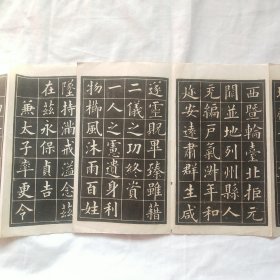 西暨輪臺北拒元
闕並地列州縣人
充編戶氣淑年和
迩安遠肅群生咸
遂靈貺畢臻雖藉
二儀之功終資
一人之慮遺身利
物櫛風沐雨百姓
隆持滿戒溢念茲
在茲永保貞吉
兼太子率更令